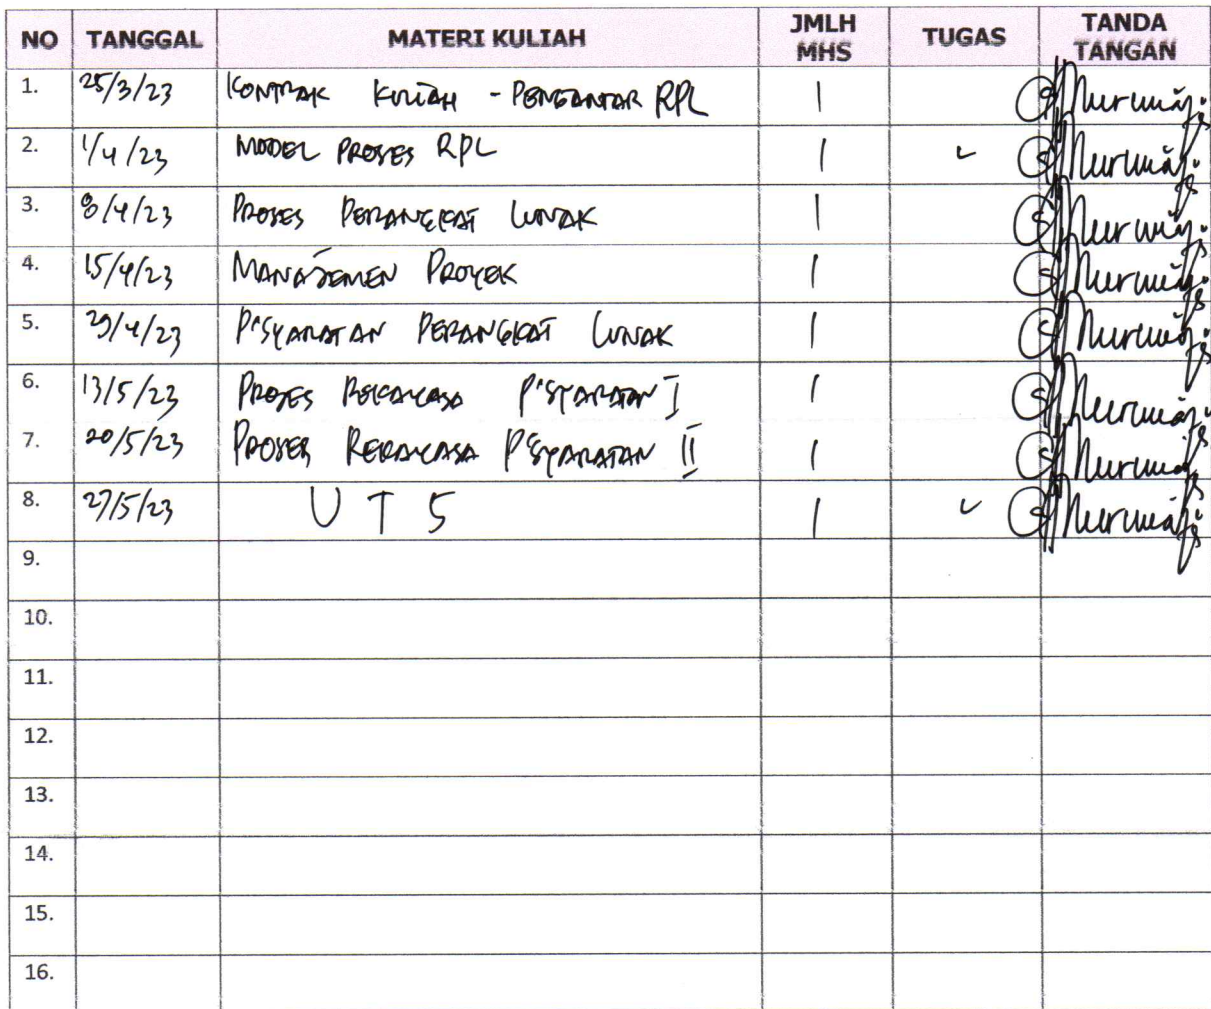 NO TANGGAL MATERI KULIAH JMLH MHS TUGAS TANDA TANGAN
1. 25/3/23 KONTRAK KULIAH - PENGANTAR RPL 1
2. 1/4/23 MODEL PROSES RPL 1 ✓
3. 8/4/23 PROSES PERANGKAT LUNAK 1
4. 15/4/23 MANAJEMEN PROYEK 1
5. 29/4/23 P'SYARATAN PERANGKAT LUNAK 1
6. 13/5/23 PROSES REKAYASA P'SYARATAN I 1
7. 20/5/23 PROSES REKAYASA P'SYARATAN II 1
8. 27/5/23 UTS 1 ✓
9.
10.
11.
12.
13.
14.
15.
16.